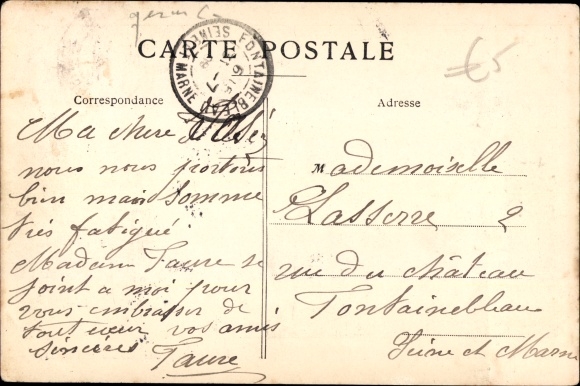 CARTE POSTALE
FONTAINEBLEAU
SEINE ET MARNE
€5
Correspondance
Adresse
Ma chere
nous nous portons
bien mais somme
très fatigué
Madame Faure se
joint a moi pour
vous embrasser de
tout cœur vos amis
sincères Faure
Mademoiselle
Lasserre 2
rue du château
Fontainebleau
Seine et Marne